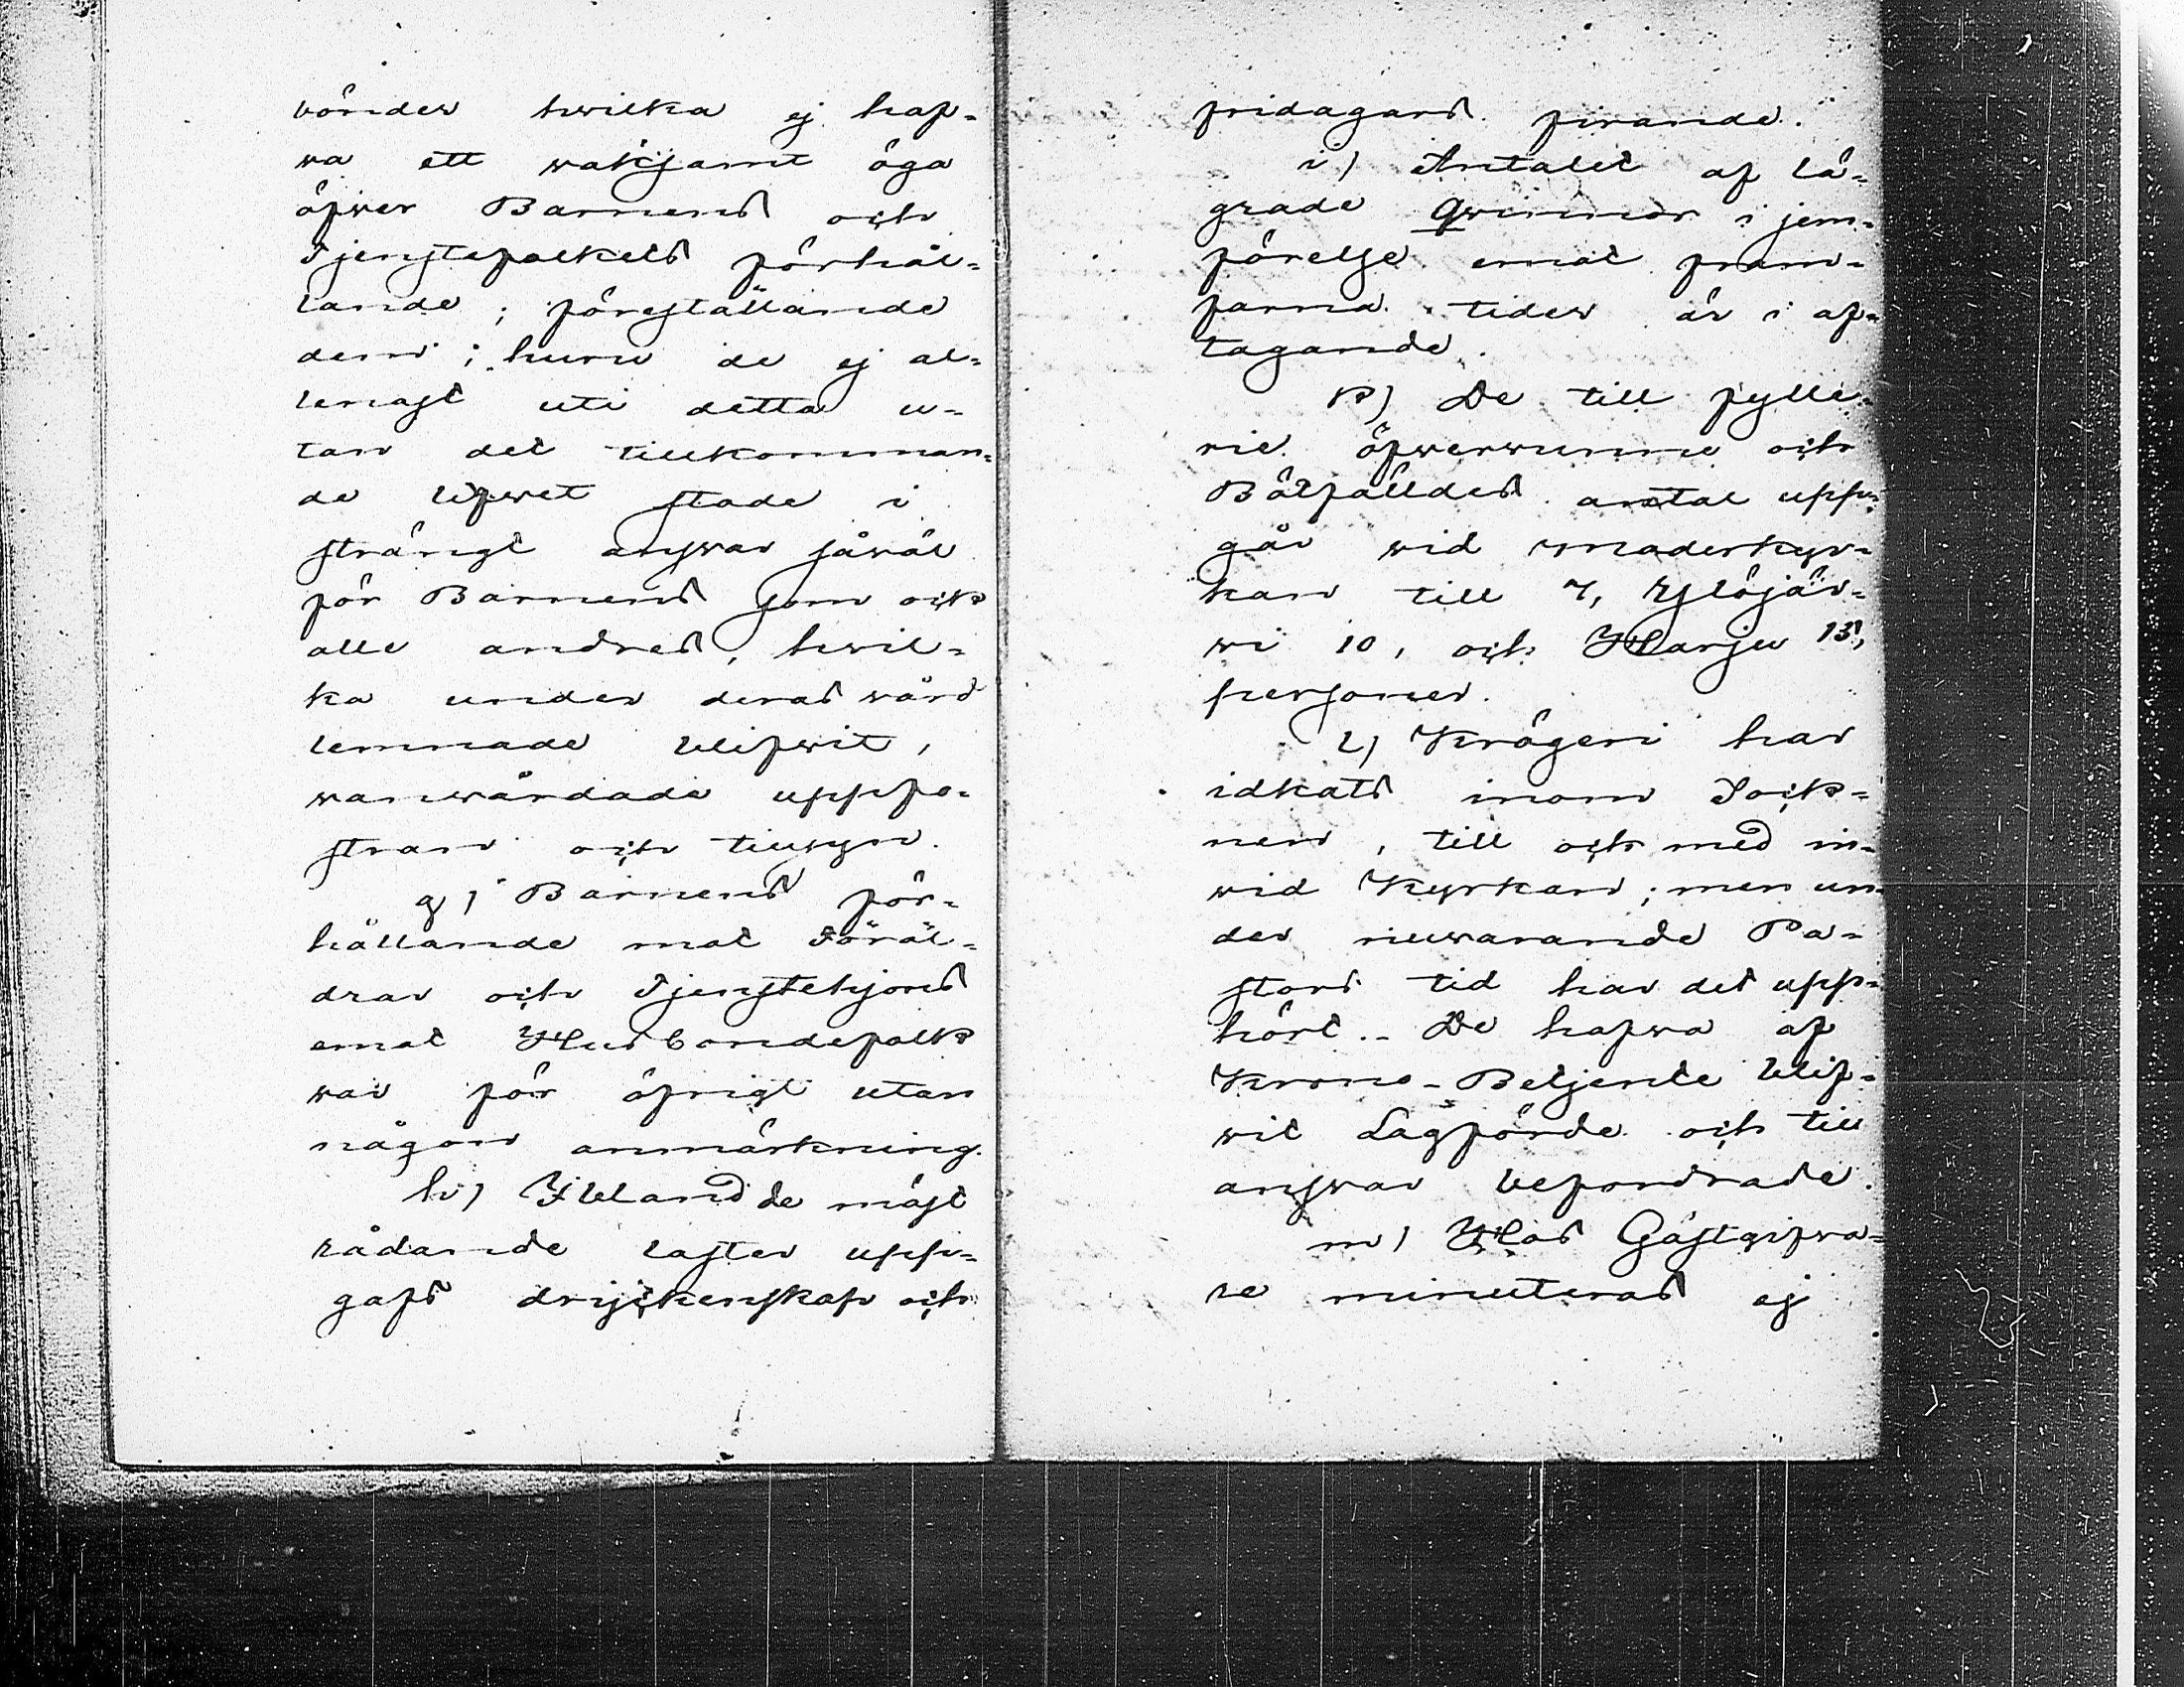 bönder hwilka ej haf=
wa ett waksamt öga
öfwer Barnens och
Tjenstefolkets förhål=
lande; föreställande
dem; huru de ej al=
lenast uti detta u=
tan det tillkomman=
de lifwet stode i
strängt answar såväl
för Barnens som ock
alle andres, hwil=
ka under deras wård
lemnade blifwit,
wanwårdade uppfo=
stran och tillsyn.
g) Barnens för=
hållande mot Föräl=
drar och Tjenstehjons
emot Husbondefolk
war för öfrigt utan
någon anmärkning.
h) Ibland de mäst
rådande laster upp=
gafs dryckenskap och
fridagars firande.
i) Antalet af lä=
grade Qwinnor i jem=
förelse emot fram=
farna tider är i af=
tagande.
k) De till fylle=
rie öfwerwunne och
Bötfälldes antal upp=
går wid moderkyr=
kan till 7, Ylöjär=
wi 10, och Harju 13,
personer.
l) Krögeri har
idkats inom Sock=
nen, till och med in=
wid Kyrkan; men un=
der nuwarande Pa=
stors tid har det upp=
hört. - De hafwa af
Krono-Betjente blif=
wit Lagförde och till
answar befordrade.
m) Hos Gästgifwa=
re minuteras ej